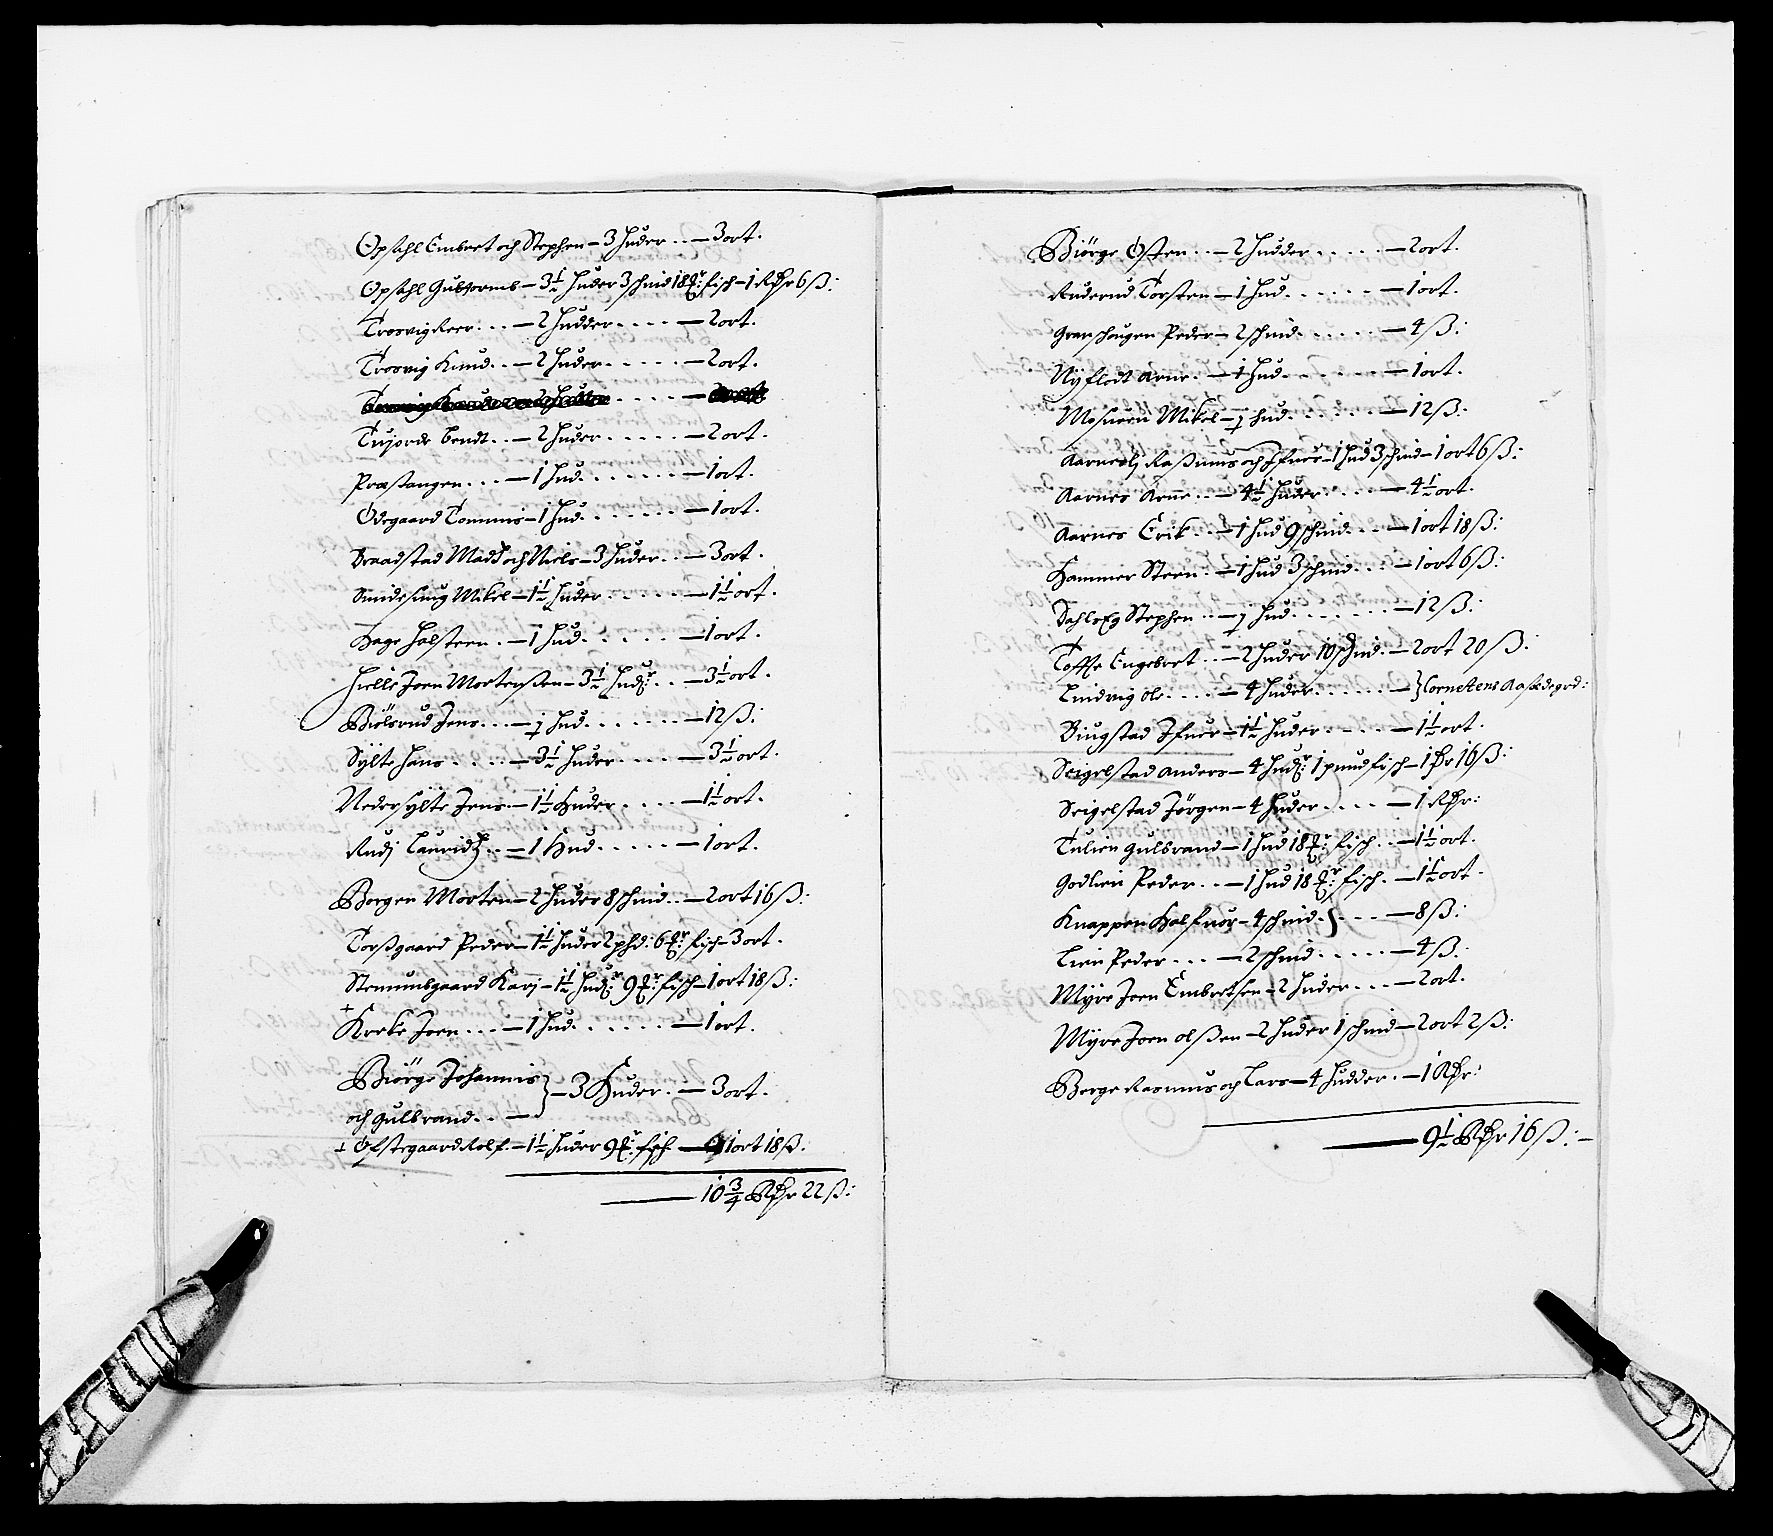 Opsahl Embret och Stephen – 3 huder . . – 3 ort.
Opsahl Gulborms – 3½ huder 3 schind 18 ℔r: fisch – 1 Rdr 6 ß:
Trosvig Reer . . . – 2 hudder . . . . – 2 ort.
Trosvig Knud . . – 2 huder . . . . . – 2 ort.
Tujorde Bendt . . – 2 huder . . . . . – 2 ort.
Præstangen . . . – 1 hud . . . . . . – 1 ort.
Odegaard Tommis – 1 hud . . . . . . – 1 ort.
Braadstad Madtz och Niels – 3 huder . . – 3 ort.
Smidesung Mikel – 1½ huder . . . . . – 1½ ort.
Hage Halsteen . – 1 hud . . . . . – 1 ort.
Hielle Joen Mortenßen – 3½ hudr: . . – 3½ ort.
Biölsrud Jens . . . – ½ hud . . . . . . – 12 ß:
Sylte Hans . . . . – 3½ huder . . . . – 3½ ort.
Nedersylte Jens – 1½ Huder . . . . – 1½ ort.
Rudj Lauridtz . . – 1 Hud . . . . . – 1 ort.
Borgen Morten – 2 huder 8 schind . . – 2 ort 16 ß:
Torßgaard Peder – 1½ huder 2 phd: 6 ℔r: fisch – 3 ort.
Stemmbsgaard Karj – 1½ hudr: 9 ℔r: fisch – 1 ort 18 ß:
+ Kreke Joen . . . – 1 hud . . . . . . – 1 ort.
Biörge Johannis } – 3 Huder . – 3 ort.
och Gulbrand . . –
+ Ofstegaard Rolf – 1½ huder 9 ℔r: fisch – 1 ort 18 ß.
– 10¾ Rdr 22 ß:
Biörge Osten . . – 2 hudder . . . . . – 2 ort.
Ruderud Torsten – 1 hud . . . . . . – 1 ort.
Granshaugen Peder – 2 schind . . . . . – 4 ß:
Nyflodt Arne . – 1 hud . . . . . . – 1 ort.
Mosueen Mikel – ½ hud . . . . . . – 12 ß:
Aarnes Raßmus och Ifuer – 1 hud 3 schind – 1 ort 6 ß:
Aarnes Arne . . – 4½ huder . . . . – 4½ ort.
Aarnes Erik . . – 1 hud 9 schind . . . – 1 ort 18 ß:
Hammer Steen . – 1 hud 3 schind . . . – 1 ort 6 ß:
Stephen . . – ½ hud . . . . . . . – 12 ß:
Toffte Engebret . . – 2 huder 10 schind . – 2 ort 20 ß:
Lindvig Ole . . . . – 4 huder . . . . . . – } Cornetens
Biugstad Ifuer – 1½ huder . . . . – 1½ ort.
Seigelstad Anders – 4 hudr: 1 pund fisch – 1 Rdr 16 ß:
Seigelstad Jörgen – 4 huder . . . . – 1 Rdr:
Tulien Gulbrand – 1 hud 18 ℔r: fisch . . – 1½ ort.
Godlien Peder . . – 1 hud 18 ℔r: fisch . – 1½ ort.
Knappen Halfuor – 4 schind . } . . . . – 8 ß:
Lien Peder . . . – 2 schind . . . . . – 4 ß:
Myre Joen Embretsen – 2 huder . . . – 2 ort.
Myre Joen Olßen – 2 huder 1 schind – 2 ort 2 ß:
Berge Rasmus och Lars – 4 hudder . – 1 Rdr:
– 9½ Rdr 16 ß: –